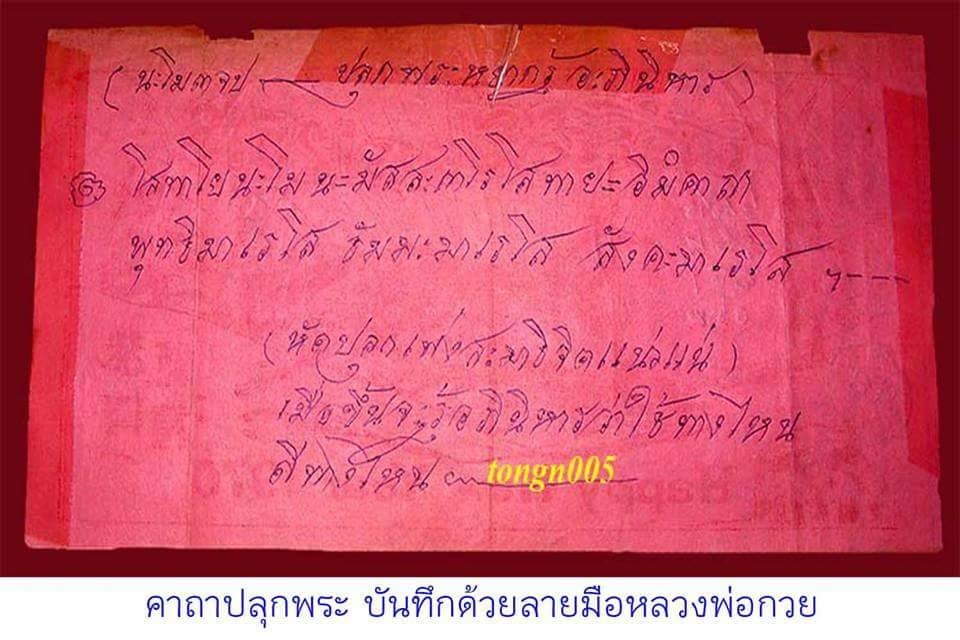 (นะโม ๓ จบ — ปลุกพระหยากรู้อะภินิหาร)
๖ โสทาโยนะโม นะมัสสะกาโรโสทายะ อิมังคาถา
พุทธิมาเรโส ธัมมะมาเรโส สังคะมาเรโส
(หัดปลุกเพ่งสะมาธิจิตแน่วแน่)
เมื่อขึ้นจะรู้อภินิหารว่าใช้ทางไหน
ดีทางไหน
tongn005
Happy
คาถาปลุกพระ บันทึกด้วยลายมือหลวงพ่อกวย